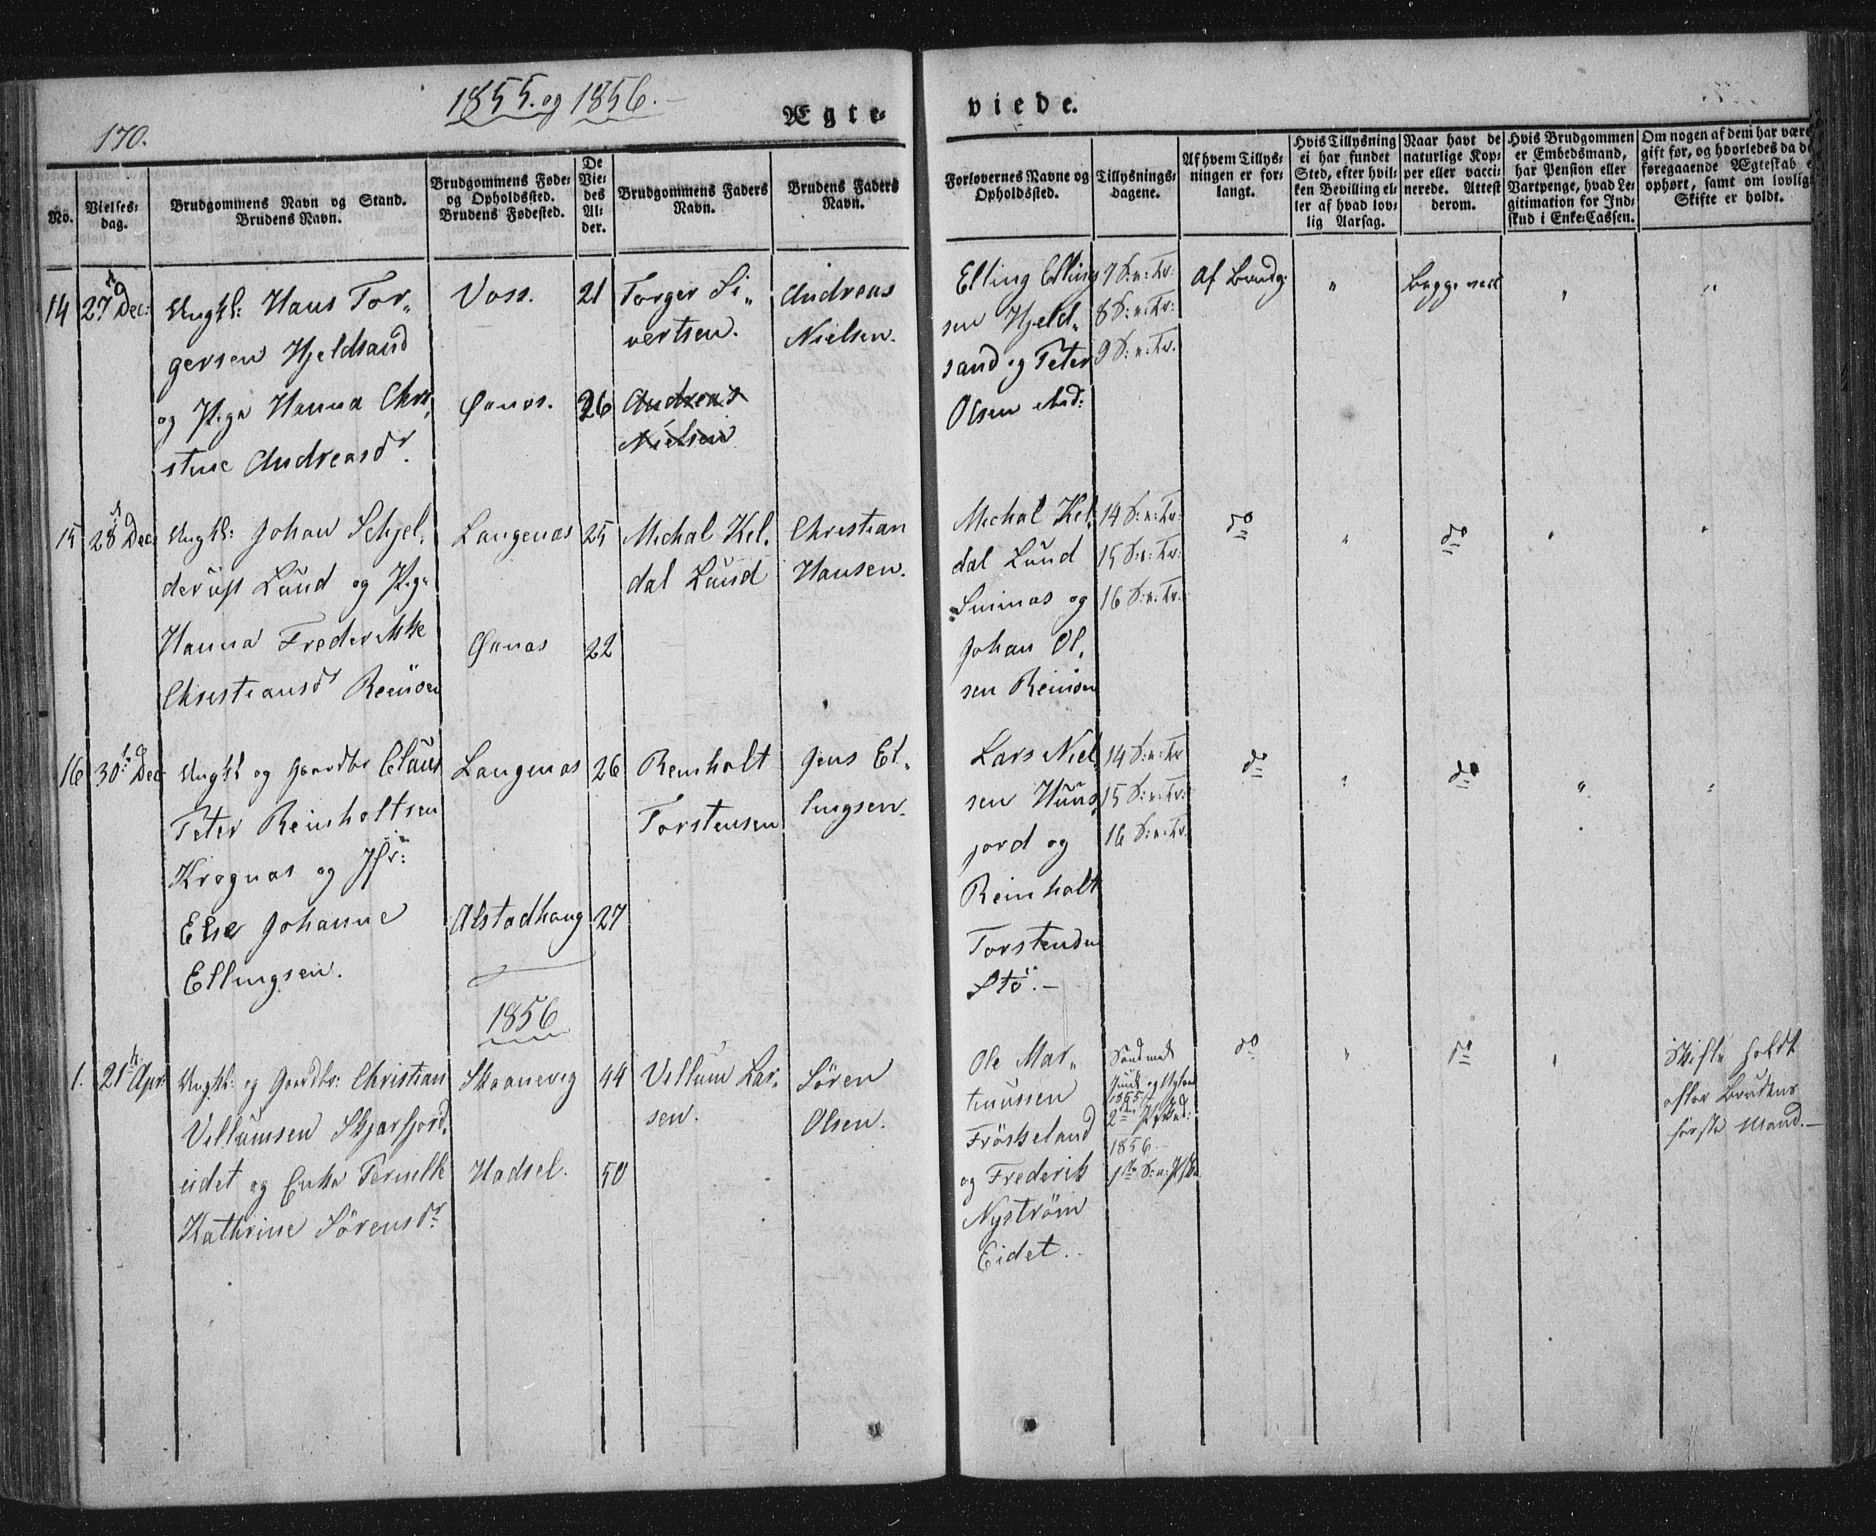 170.
1855. og 1856.
Ægte-
viede.
No.
Vielses-
dag.
Brudgommens Navn og Stand.
Brudens Navn.
Brudgommens Føde-
og Opholdssted.
Brudens Fødested.
De
Vie-
des
Al-
der.
Brudgommens Faders
Navn.
Brudens Faders
Navn.
Forlovernes Navne og
Opholdssted.
Tillysnings-
dagene.
Af hvem Tillys-
ningen er for-
langt.
Hvis Tillysning
ei har fundet
Sted, efter hvil-
ken Bevilling el-
ler af hvad lov-
lig Aarsag.
Naar havt de
naturlige Kop-
per eller vacci-
nerede. Attest
derom.
Hvis Brudgommen
er Embedsmand,
har Pension eller
Vartpenge, hvad Le-
gitimation for Ind-
skud i Enke-Cassen.
Om nogen af dem har være
gift før, og hvorledes da de
foregaaende Ægteskab e
ophørt, samt om lovlig
Skifte er holdt.
14
27 Dec:
Ungkl: Hans Tor-
gersen Hjeldsand
og P.ge Hanna Chri-
stine Andreasdr.
Voss.
Øxnæs.
21
26
Torger Si-
vertsen.
Andreas
Nielsen
Andreas
Nielsen.
Elling Elling
sen Hjeld-
sand og Peter
Olsen
7 S: n: Tr:
8 S: n: Tr:
9 S: n: Tr.
Af Brudg:
"
Begge vacc
"
"
15
28 Dec
Ungkl: Johan Schjel-
derup Lund og P.ge
Hanna Frederikke
Christiansdr Reinöen
Langenæs
Øxnæs
25
22
Michal Kel-
dal Lund
Christian
Hansen.
Michal Kel-
dal Lund
Sminæs og
Johan Ol-
sen Reinöen
14 S: n: Tr:
15 S: n: Tr:
16 S: n: Tr:
do
"
do
"
"
16
30 Dec
Ungkl og Gaardbr Claus
Peter Reinholtsen
Krognæs og Jfr:
Else Johanne
Ellingsen.
Langenæs
Alstadhoug
26
27
Reinholt
Torstensen
Jens El-
lingsen.
Lars Niel-
sen Huns-
jord og
Reinholt
Torstensen
Stö.-
14 S: n: Tr
15 S: n: Tr:
16 S: n: Tr.
do
"
do
"
"
1856
1.
21 Apr:
Ungkl: og Gaardbr: Christian
Villumsen Skjærfjord-
eidet og Enke Pernelle
Kathrine Sörensdr
Skaanevig
Hadsel.
44
50
Villum Lar-
sen.
Sören
Olsen.
Ole Mar-
tinussen
Fröskeland
og Frederik
Nyström
Eidet.
1855
1856
do
"
do
"
Skifte holdt
efter Brudens
første Mand.-